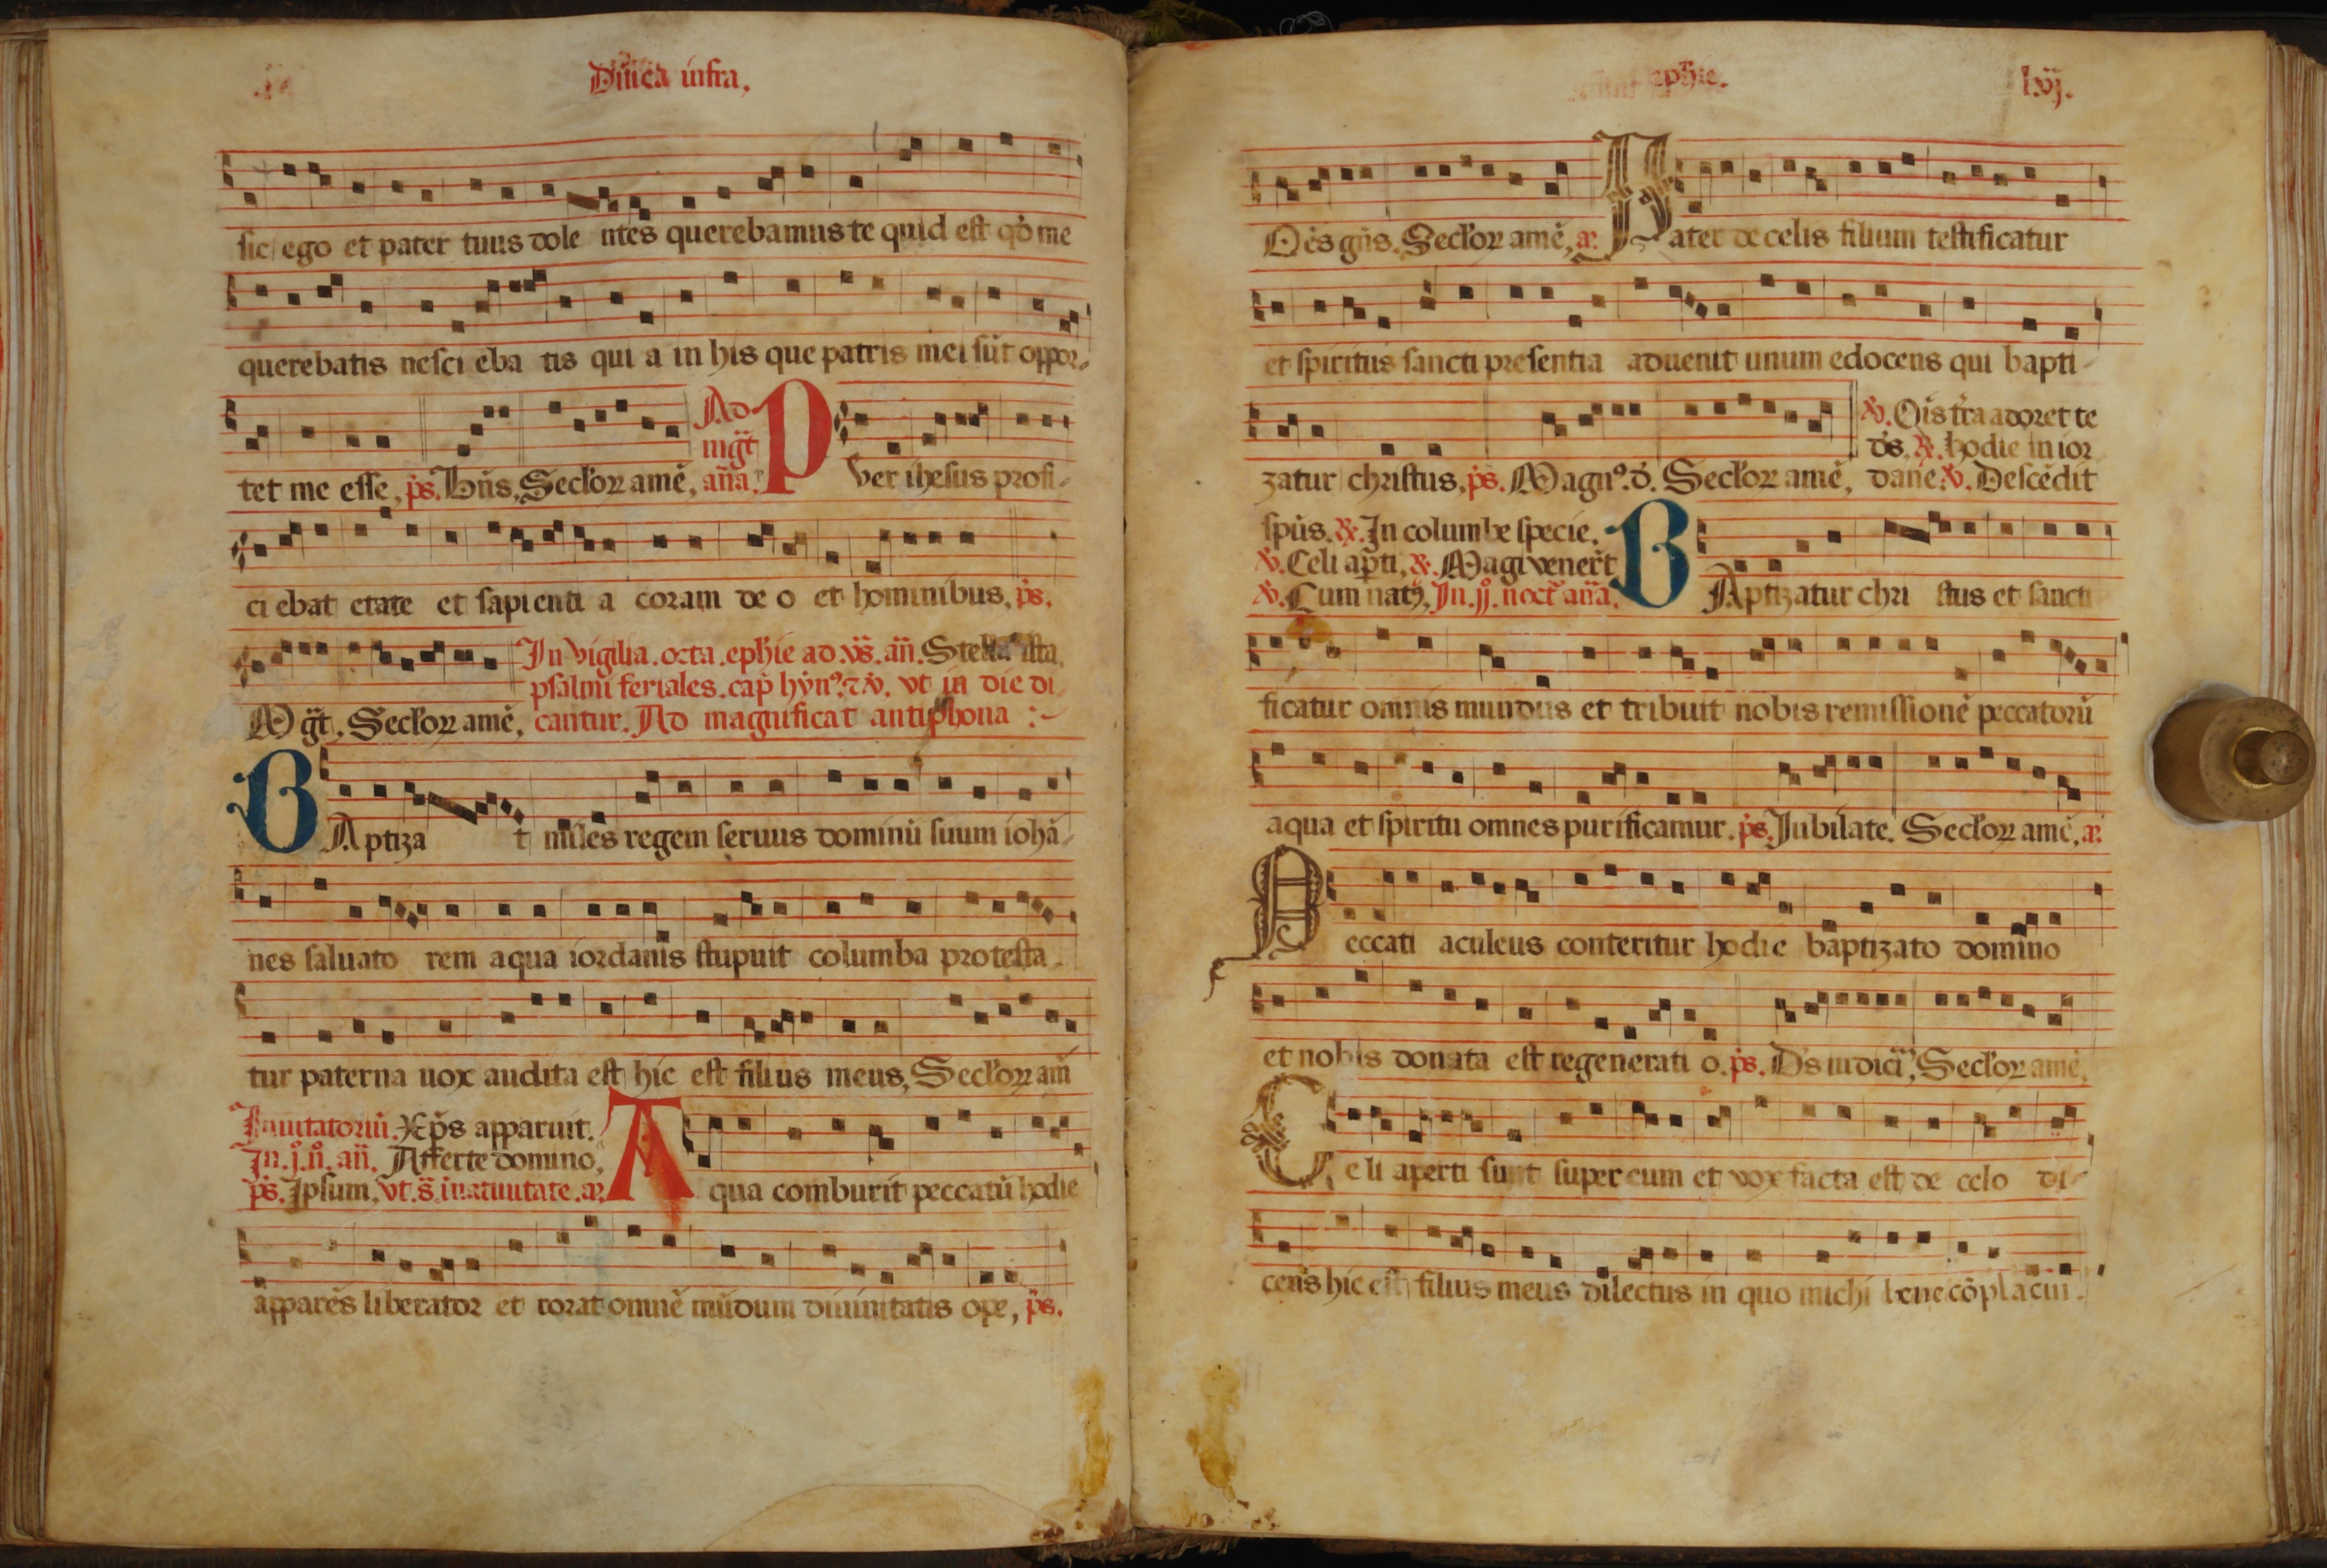 Dñica infra,
sic ego et pater tuus dole ntes querebamus te quid est qđ me
querebatis nesci eba tis qui a in his que patris mei sūt oppor-
tet me esse, p̄s. Bñs, Secłoꝝ amē, aña.
Ad
mgᷓt
PVer ihesus profi-
ci ebat etate et sapienti a coram de o et hominibus, p̄s.
In vigilia. octa. ephie ad. vs̄. añ. Stella ista
psalmi feriales. cap̄ hyn⁹. ⁊ ℣. vt in die di
Mgᷓt, Secłoꝝ amē, cantur. Ad magnificat antiphona :-
BAptiza t miles regem seruus dominū suum iohā-
nes saluato rem aqua iordanis stupuit columba protesta.
tur paterna uox audita est hic est filius meus, Secłoꝝ am̄
Inuitatoriū. Xp̄s apparuit.
In. j. n̊. añ. Afferte domino,
p̄s. Ipsum, vt. s̄. in natiuitate. a.
Aqua comburit peccatū hodie
apparēs liberator et rorat omnē mūdum diuinitatis ope, p̄s.
ephie.
lvj.
Oēs gn̄s. Secłoꝝ amē, a. Pater de celis filium testificatur
et spiritus sancti presentia aduenit unum edocens qui bapti-
℣. Oīs t̄ra adoret te
ds̄. ℟. hodie in ior
zatur christus, p̄s. Magn⁹. d̄. Secłoꝝ amē, dane. ℣. Descēdit
sp̄us. ℟. In columbe specie,
℣. Celi ap̄ti, ℟. Magi venerūt
℣. Cum nat⁹, In. ij. noct̄ aña.
BAptizatur chri stus et sancti
ficatur omnis mundus et tribuit nobis remissionē peccatorū
aqua et spiritu omnes purificamur. p̄s. Iubilate. Secłoꝝ amē, a.
Peccati aculeus conteritur hodie baptizato domino
et nobis donata est regenerati o. p̄s. Ds̄ iudiciū, Secłoꝝ amē,
Celi aperti sunt super eum et vox facta est de celo di-
cens hic est filius meus dilectus in quo michi bene cōplacui.